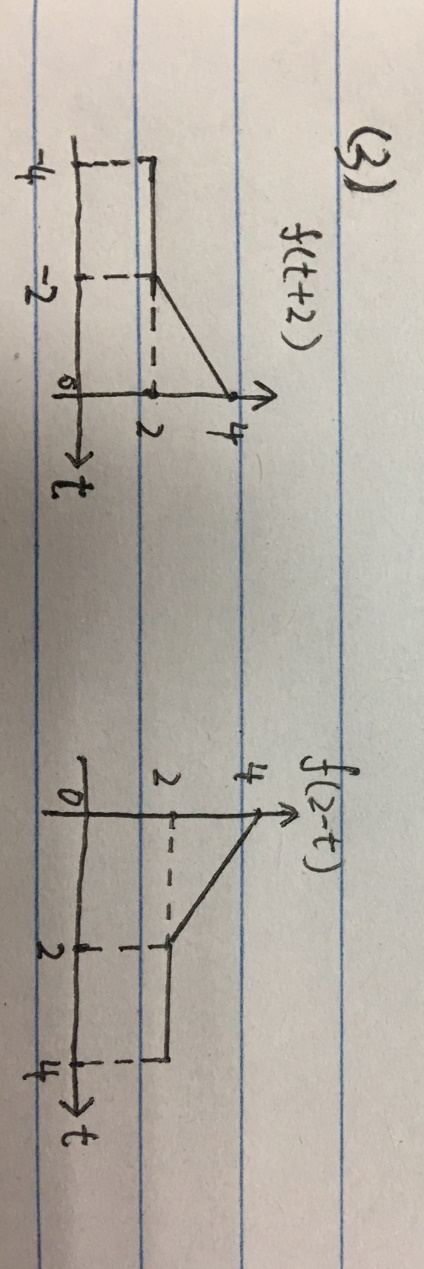 (3)
f(t+2)
4
2
-4
-2
0
t
f(2-t)
4
2
0
2
4
t